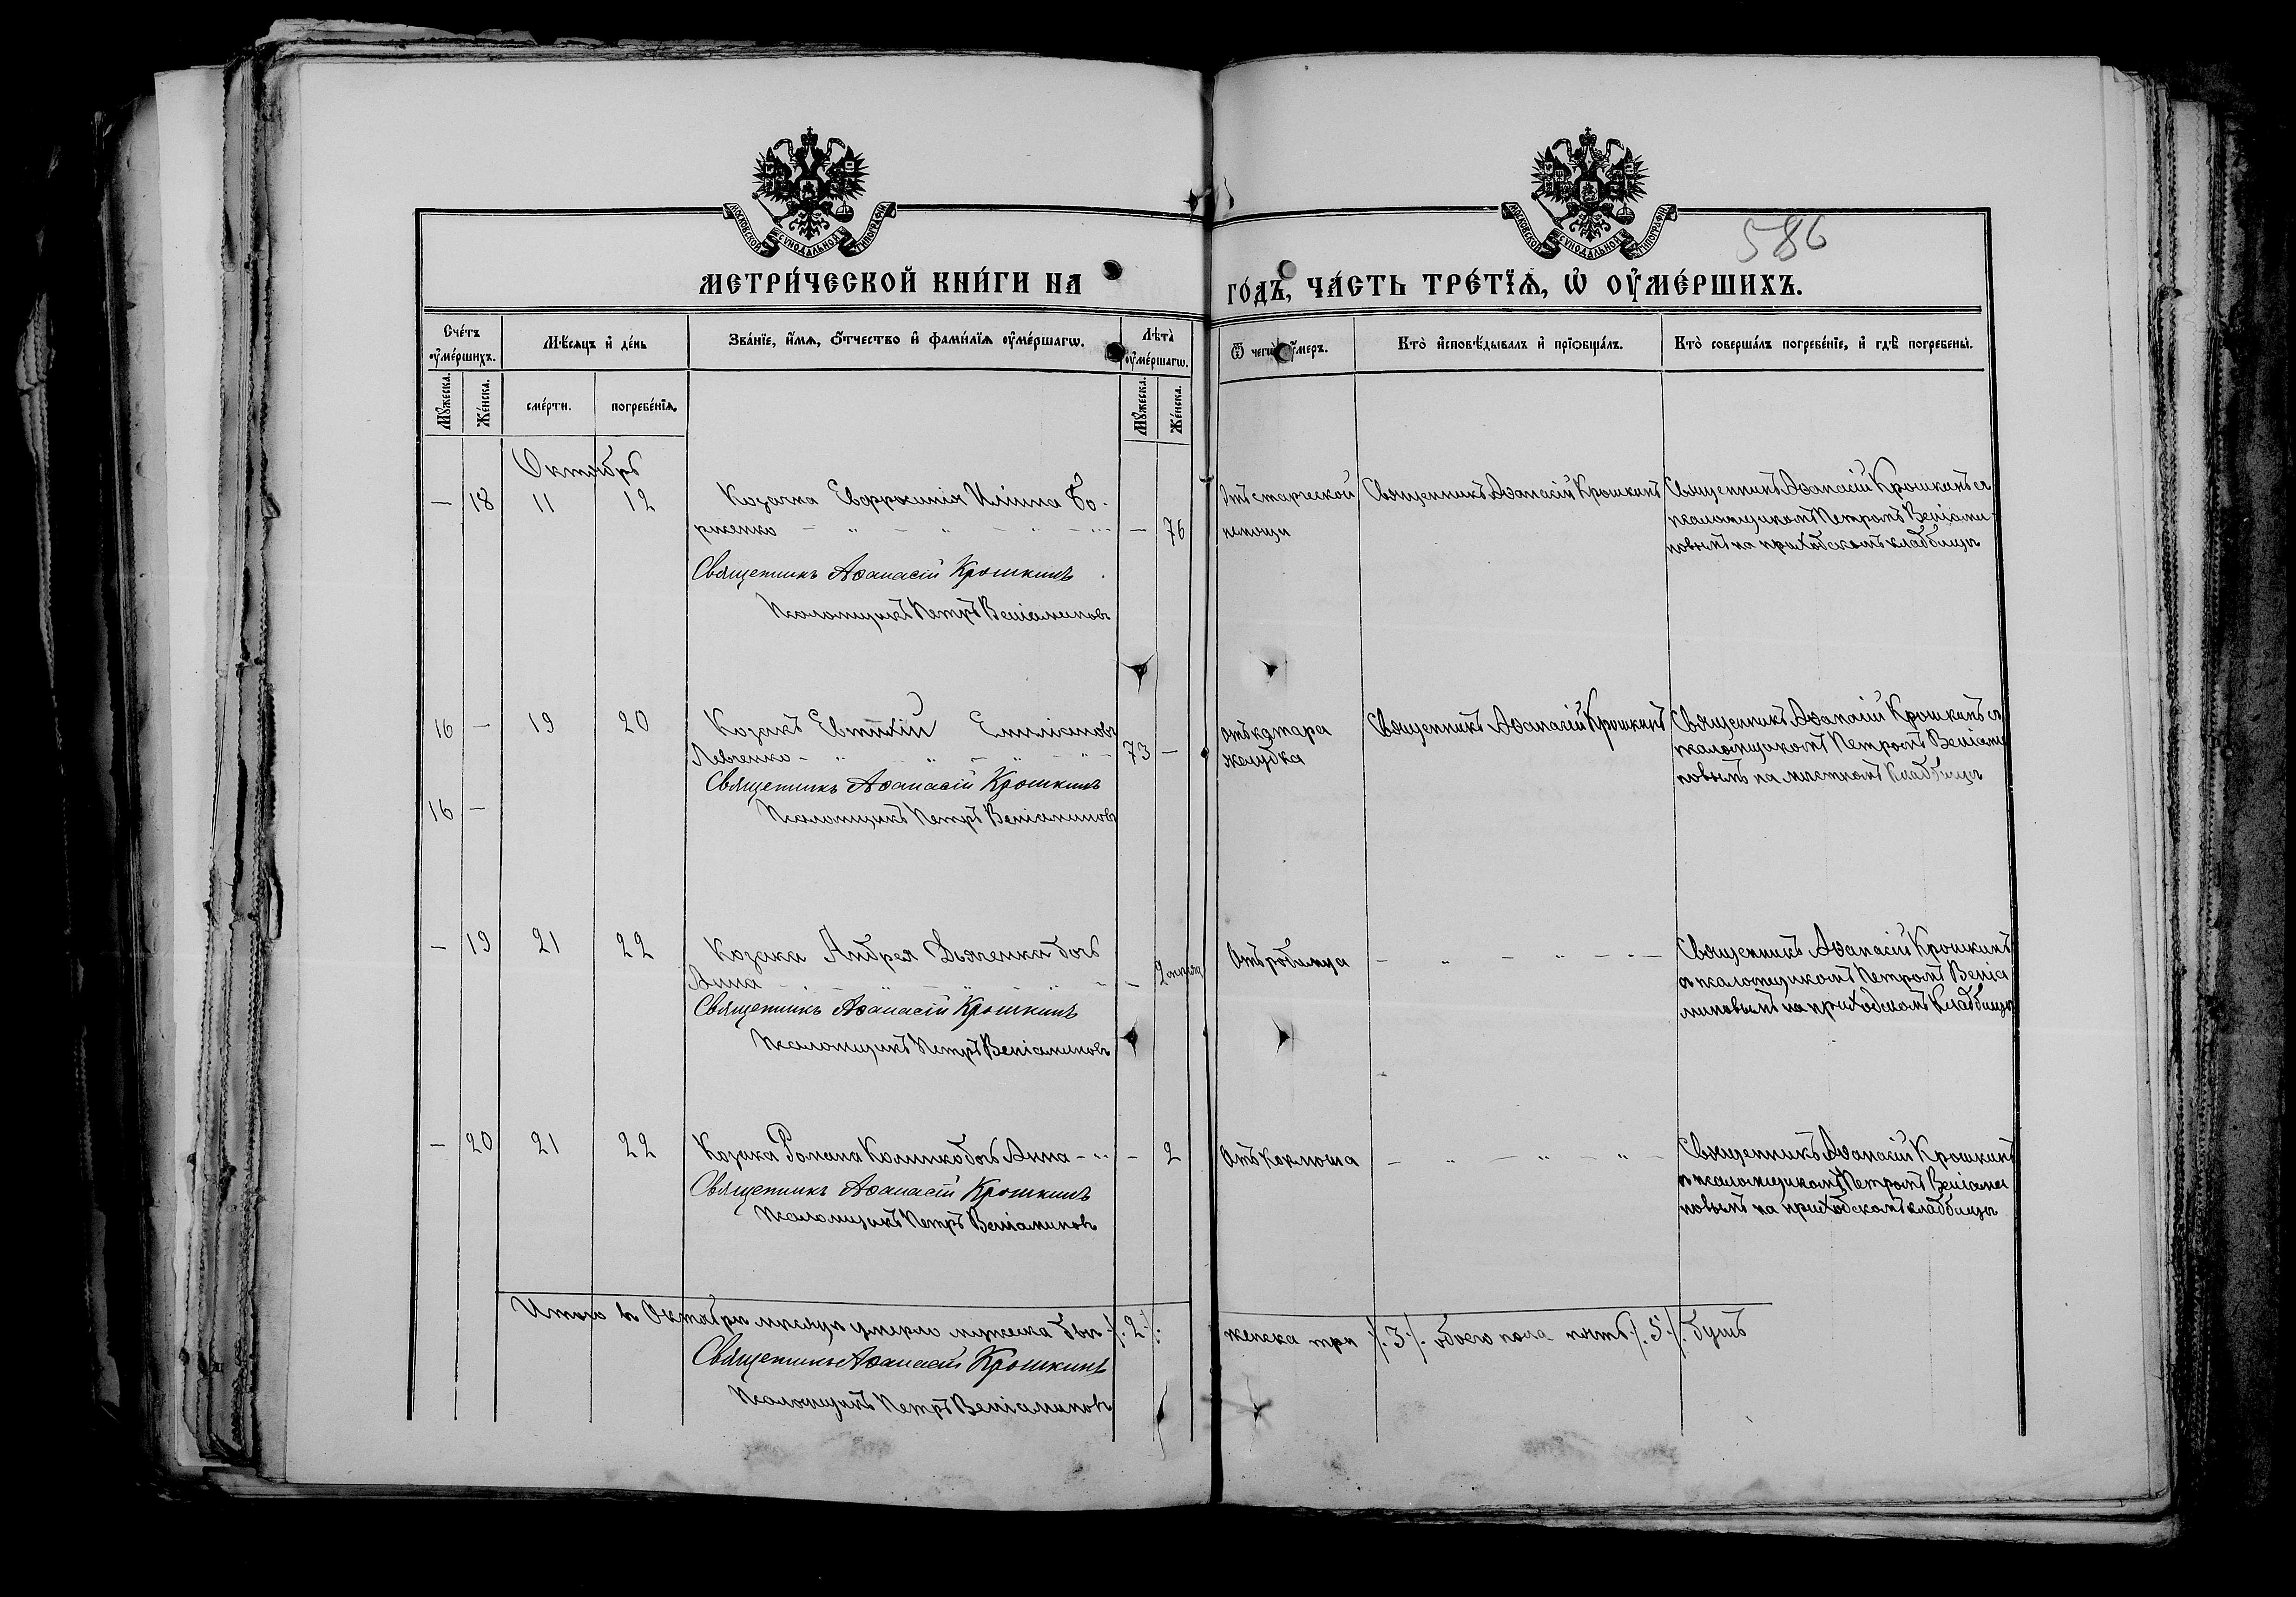 586
МОСКОВСКОЙ СѴНОДАЛЬНОЙ ТИПОГРАФІИ
МОСКОВСКОЙ СѴНОДАЛЬНОЙ ТИПОГРАФІИ
МЕТРИ́ЧЕСКОЙ КНИ́ГИ НА
ГО́ДЪ, ЧА́СТЬ ТРЕ́ТЇѦ, Ѽ ОУ҆МЕ́РШИХЪ.
Сче́тъ оу҆ме́ршихъ.
Мѣ́сяцъ и҆ де́нь
Зва́нїе, и҆́мѧ, ѻ҆́тчество и҆ фами́лїѧ оу҆ме́ршагѡ.
Лѣ́та оу҆ме́ршагѡ.
Ѿ чегѡ̀ оу҆́меръ.
Кто̀ и҆сповѣ́дывалъ и҆ прїѡбща́лъ.
Кто̀ соверша́лъ погребе́нїе, и҆ гдѣ̀ погребены̀.
Мꙋ́жеска.
Же́нска.
сме́рти.
погребе́нїѧ.
Мꙋ́жеска.
Же́нска.
Октябрь
— 18 11 12 Козачка Евфросинія Ильина Бо-
рженко — 76
Священникъ Аѳанасій Крошкинъ
Псаломщикъ Петръ Веніаминовъ
Отъ старческой
немощи
Священникъ Аѳанасій Крошкинъ
Священникъ Аѳанасій Крошкинъ съ
псаломщикомъ Петромъ Веніами-
новымъ на приходскомъ кладбищѣ
16 — 19 20 Козакъ Евтихій Емиліановъ
Левченко 73 —
Священникъ Аѳанасій Крошкинъ
16 — Псаломщикъ Петръ Веніаминовъ
отъ катара
желудка
Священникъ Аѳанасій Крошкинъ
Священникъ Аѳанасій Крошкинъ съ
псаломщикомъ Петромъ Веніами
новымъ на мѣстномъ кладбищѣ
— 19 21 22 Козака Андрея дочь
Анна — 2
Священникъ Аѳанасій Крошкинъ
Псаломщикъ Петръ Веніаминовъ
Отъ родимца
Священникъ Аѳанасій Крошкинъ
съ псаломщикомъ Петромъ Веніа
миновымъ на приходскомъ кладбищѣ
— 20 21 22 Козака Романа дочь Анна — 2
Священникъ Аѳанасій Крошкинъ
Псаломщикъ Петръ Веніаминовъ
Отъ коклюша
Священникъ Аѳанасій Крошкинъ
съ псаломщикомъ Петромъ Веніами
новымъ на приходскомъ кладбищѣ
Итого въ Октябрѣ мѣсяцѣ умерло мужеска два /. 2 /.
женска три /. 3 /. обоего пола пять /. 5 /. душъ
Священникъ Аѳанасій Крошкинъ
Псаломщикъ Петръ Веніаминовъ